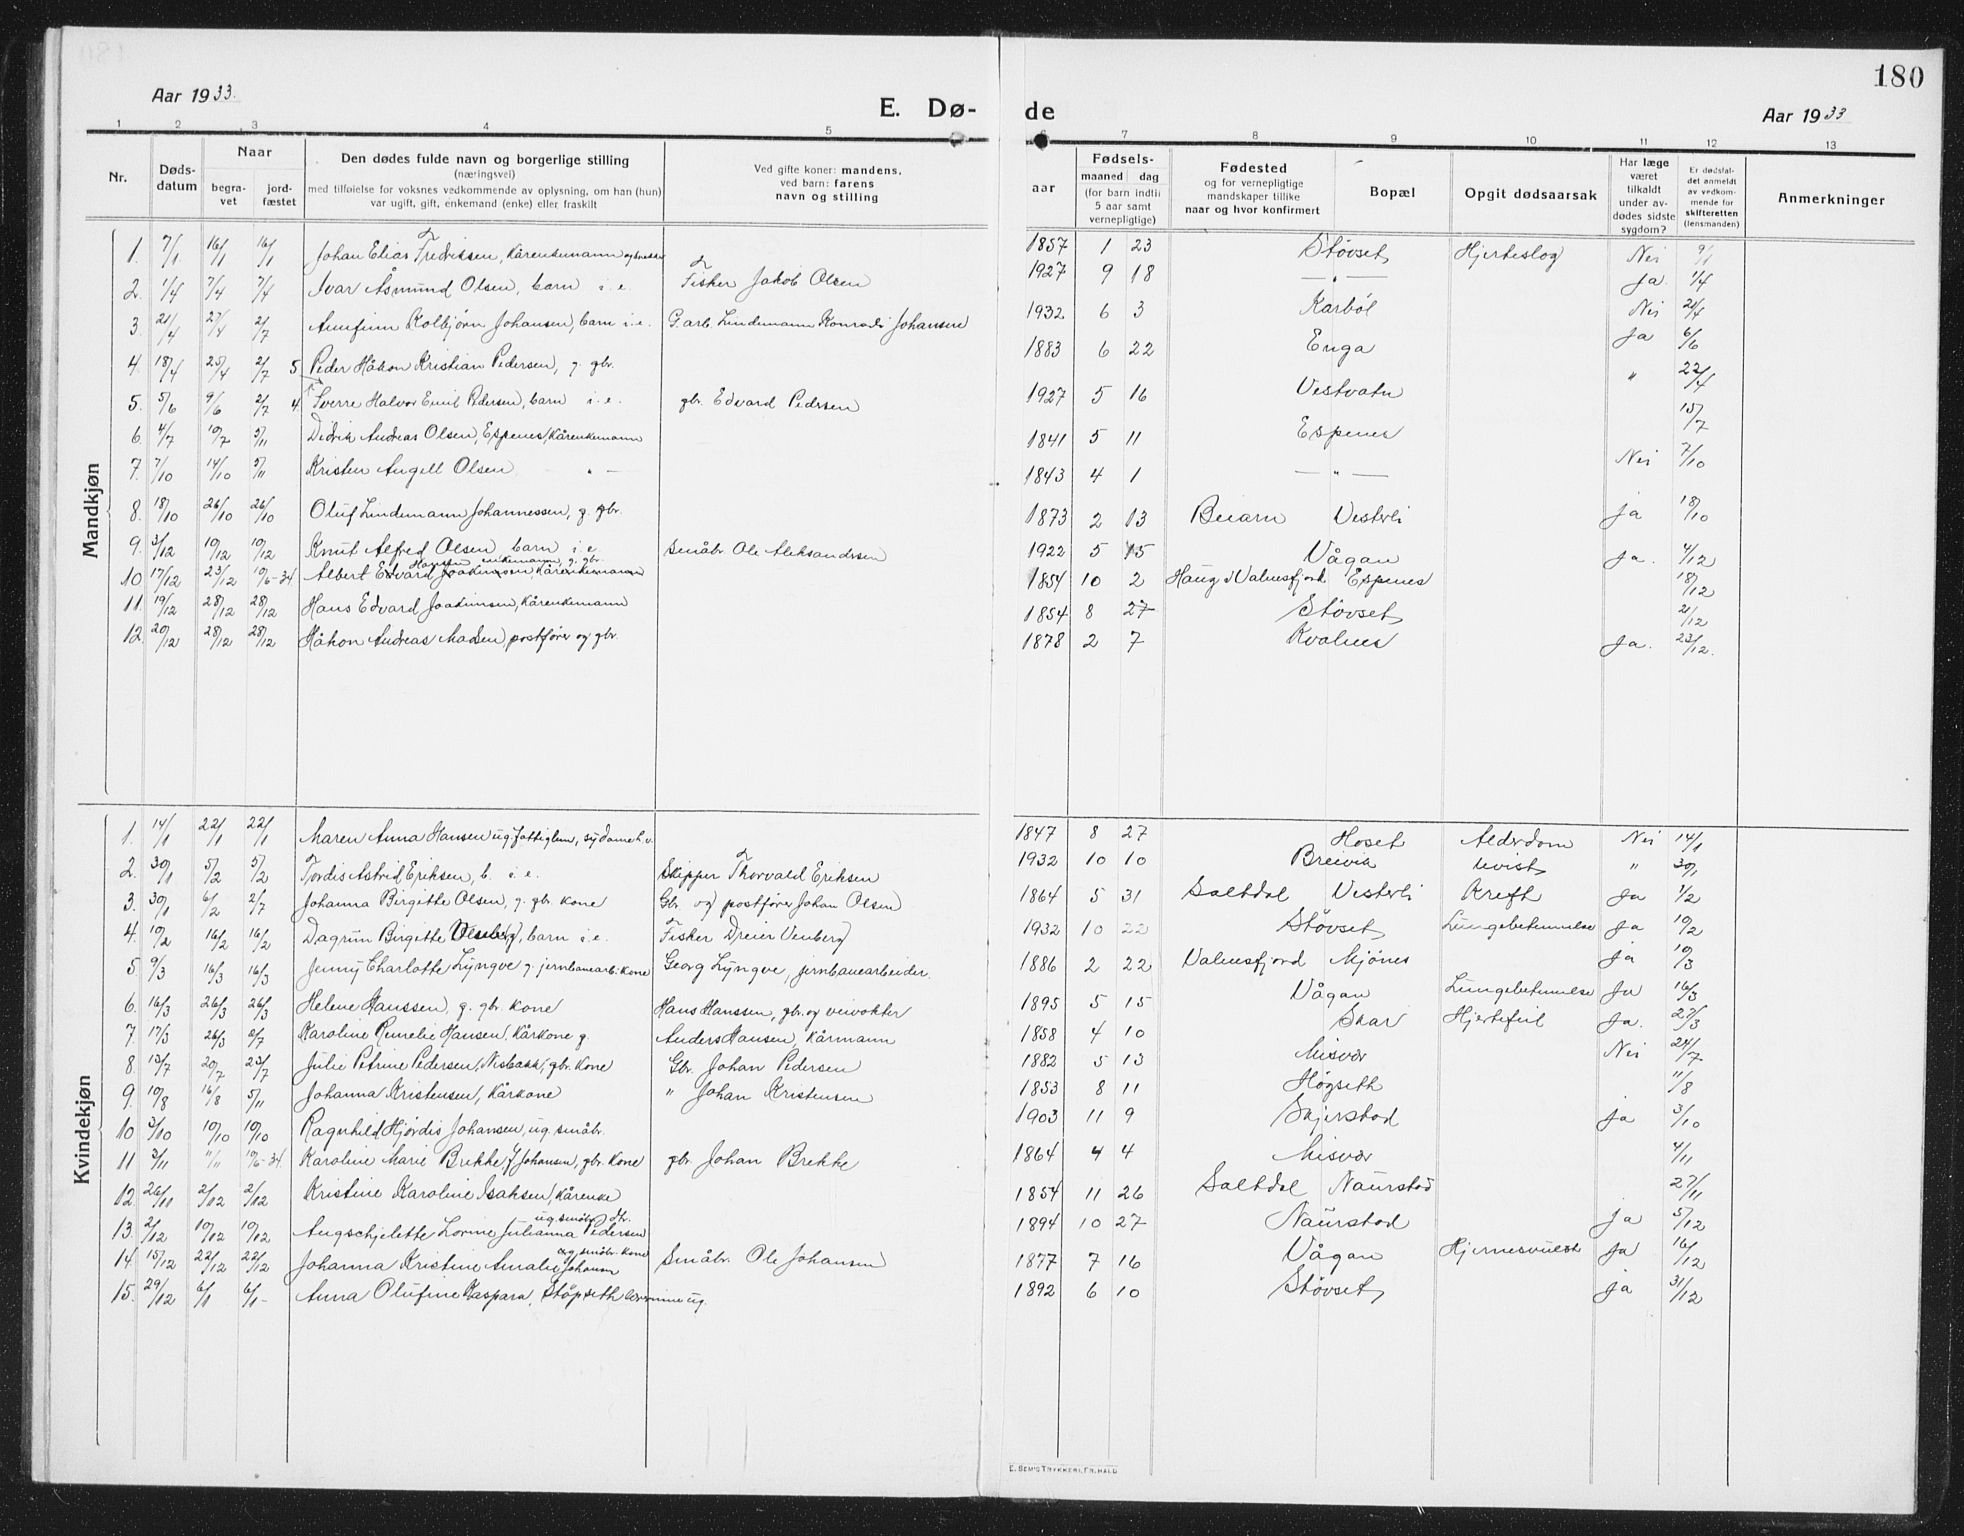 180
Aar 1933.
E. Dø-
de
Aar 1933
1 2 3 4 5 6 7 8 9 10 11 12 13
Nr.
Døds-
datum
Naar
begra-
vet
jord-
fæstet
Den dødes fulde navn og borgerlige stilling
(næringsvei)
med tilføielse for voksnes vedkommende av oplysning, om han (hun)
var ugift, gift, enkemand (enke) eller fraskilt
Ved gifte koner: mandens,
ved barn: farens
navn og stilling
Fødsels-
aar
maaned dag
(for barn indtil
5 aar samt
vernepligtige)
Fødested
og for vernepligtige
mandskaper tillike
naar og hvor konfirmert
Bopæl
Opgit dødsaarsak
Har læge
været
tilkaldt
under av-
dødes sidste
sygdom?
Er dødsfal-
det anmeldt
av vedkom-
mende for
skifteretten
(lensmanden)
Anmerkninger
Mandkjøn
1. 7/1 16/1 16/1 Johan Elias Fredriksen, Kårenkemann 1857 1 23 Støvset Hjerteslag Nei 9/1
2. 1/4 7/4 7/4 Ivar Åsmund Olsen, barn i.e. Fisker Jakob Olsen 1927 9 18 — " — Ja. 1/4
3. 21/4 27/4 2/7 Arnfinn Kolbjørn Johansen, barn i.e. G.arb. Lindemann Konradi Johansen 1932 6 3 Karbøl Nei 21/4
4. 18/4 25/4 2/7 5 Peder Håkon Kristian Pedersen, g. gbr. 1883 6 22 Enga Ja 6/6
5. 5/6 9/6 2/7 4. Sverre Halvor Emil Pedersen, barn i.e. gbr. Edvard Pedersen 1927 5 16 Vestvatn " 22/4
6. 4/7 10/7 5/11 Didrik Andreas Olsen, Espenes, Kårenkemann 1841 5 11 Espenes 15/7
7. 7/10 14/10 5/11 Kristen Angell Olsen — " — 1843 4 1 — " — Nei 7/10
8. 18/10 26/10 26/10 Oluf Lindemann Johannessen, g. gbr. 1873 2 13 Beiarn Vesterli Ja 18/10
9. 3/12 10/12 10/12 Knut Alfred Olsen, barn i.e. Småbr. Ole Aleksandersen 1922 5 15 Vågan Ja. 4/12
Hansen enkemann, g. gbr.
10 17/12 23/12 10/6-34 Albert Edvard Joakimsen Kårenkemann 1854 10 2 Haug i Valnesfjord Espenes 18/12
11. 19/12 28/12 28/12 Hans Edvard Joakimsen, Kårenkemann 1854 8 27 Støvset 21/12
12. 20/12 28/12 28/12 Håkon Andreas Madsen, postfører og gbr. 1878 2 7 Kvalnes Ja. 23/12.
Kvindekjøn
1. 14/1 22/1 22/1 Maren Anna Hansen ug. fattiglem, 1847 8 27 Hoset Alderdom Nei 14/1
2. 30/1 5/2 5/2 Tordis Astrid Eriksen, b. i.e. Skipper Thorvald Eriksen 1932 10 10 Breivik Uvist " 30/1
3. 30/1 6/2 2/7 Johanna Birgitte Olsen, g. gbr. kone Gbr. og postfører Johan Olsen 1864 5 31 Saltdal Vesterli Kreft Ja 1/2
4. 10/2 16/2 16/2 Dagrun Birgitte barn i.e. Fisker Dreier Venberg 1932 10 22 Støvset Lungebetennelse Ja 10/2
5. 9/3 16/3 16/3 Jenny Charlotte Lyngve g. jernbanearb. kone Georg Lyngve, jernbanearbeider. 1886 2 22 Valnesfjord Mjønes Ja 10/3
6. 16/3 26/3 26/3 Helene Hanssen, g. gbr. kone Hans Hanssen, gbr. og veivokter 1895 5 15 Vågan Lungebetennelse Ja 16/3
7. 17/3 26/3 2/7 Karoline Hansen, Kårkone g. Anders Hansen, Kårmann 1858 4 10 Skar Hjertefeil Ja. 27/3
8. 13/7 20/7 23/7 Julie Petrine Pedersen, Nisbakk, gbr. kone Gbr. Johan Pedersen 1882 5 13 Misvær Nei 24/7
9. 10/8 16/8 5/11 Johanna Kristensen, Kårkone " Johan Kristensen 1853 8 11 Høgseth 11/8
10 3/10 10/10 10/10 Ragnhild Hjørdis Johansen, ug. småbr. 1903 11 9 Skjerstad Ja 3/10
11 3/11 11/11 10/6-34. Karoline Marie Brekke, f. Johansen, gbr. kone gbr. Johan Brekke 1864 4 4 Misvær 4/11
12. 26/11 2/12 2/12 Kristine Karoline Isaksen, Kårenke 1854 11 26 Saltdal Naurstad 27/11
ug. småbr. dtr.
13. 2/12 10/12 10/12 Angschjelette Lorine Julianna Pedersen 1894 10 27 Naurstad Ja 5/12
småbr. kone
14. 15/12 22/12 22/12 Johanna Kristine Amalie Johansen Småbr. Ole Johansen 1877 7 16 Vågan Hjernesvulst Ja 16/12
15. 29/12 6/1 6/1- Anna Olufine Kaspara Støpseth lærerinne ug. 1892 6 10 Støvset Ja 31/12
E. SEM'S TRYKKERI, FR.HALD